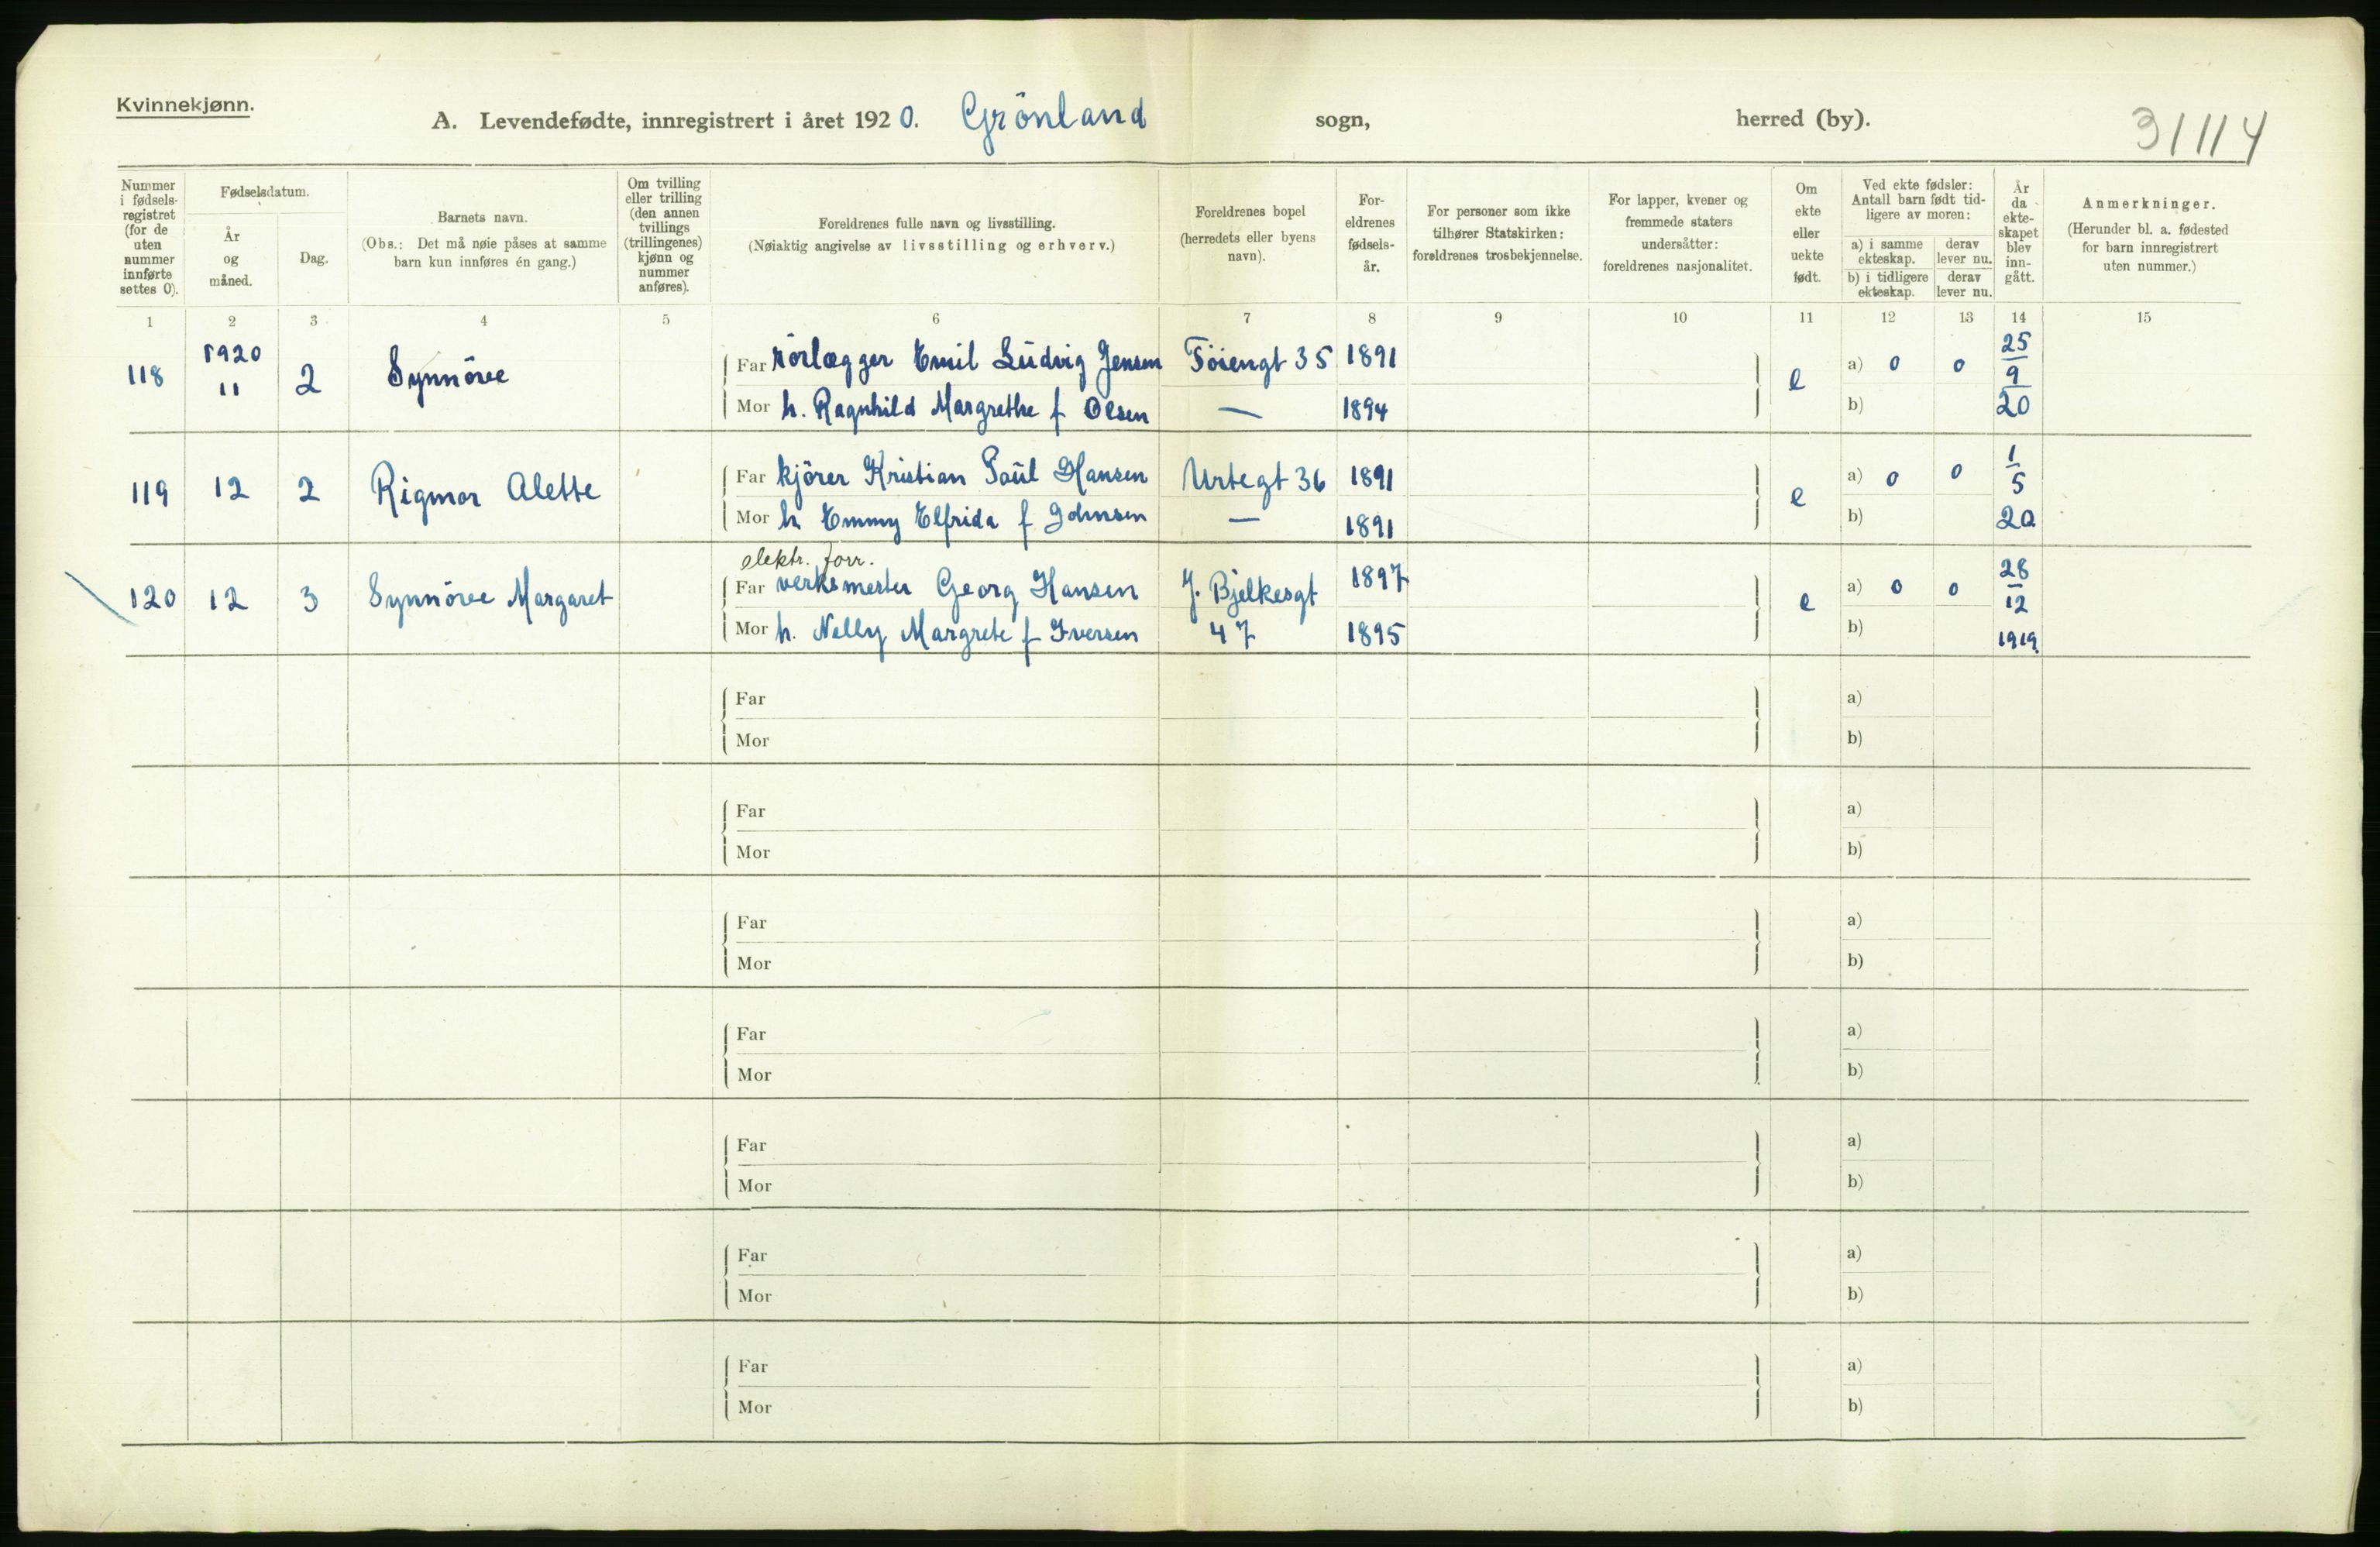 Kvinnekjønn.
A. Levendefødte, innregistrert i året 1920. Grönland sogn, herred (by). 31114
Nummer i fødsels-registret (for de uten nummer innførte settes 0).
Fødselsdatum.
År og måned.
Dag.
Barnets navn.
(Obs.: Det må nøie påses at samme barn kun innføres én gang.)
Om tvilling eller trilling (den annen tvillings (trillingenes) kjønn og nummer anføres).
Foreldrenes fulle navn og livsstilling.
(Nøiaktig angivelse av livsstilling og erhverv.)
Foreldrenes bopel (herredets eller byens navn).
For-eldrenes fødsels-år.
For personer som ikke tilhører Statskirken: foreldrenes trosbekjennelse.
For lapper, kvener og fremmede staters undersåtter: foreldrenes nasjonalitet.
Om ekte eller uekte født.
Ved ekte fødsler: Antall barn født tid-ligere av moren:
a) i samme ekteskap.
derav lever nu.
b) i tidligere ekteskap.
derav lever nu.
År da ekte-skapet blev inn-gått.
Anmerkninger.
(Herunder bl. a. fødested for barn innregistrert uten nummer.)
1 2 3 4 5 6 7 8 9 10 11 12 13 14 15
118 1920 11 2 Synnöve
Far rörlægger Emil Ludvig Jensen Töiengt 35 1891 e a) 0 0 25/9 20
Mor h. Ragnhild Margrethe f Olsen — 1894 b)
119 12 2 Rigmor Alette
Far kjörer Kristian Paul Hansen Urtegt 36 1891 e a) 0 0 1/5 20
Mor h Emmy Elfrida f Johnsen — 1891 b)
elektr. forr.
120 12 3 Synnöve Margaret
Far verksmester Georg Hansen J. Bjelkesgt 1897 e a) 0 0 28/12 1919.
Mor h. Nelly Margrete f Iversen 47 1895 b)
Far a)
Mor b)
Far a)
Mor b)
Far a)
Mor b)
Far a)
Mor b)
Far a)
Mor b)
Far a)
Mor b)
Far a)
Mor b)